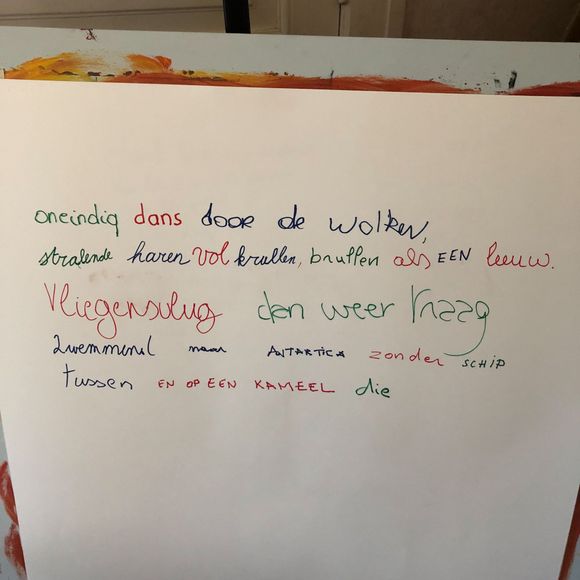 oneindig dans door de wolken,
stralende haren vol krullen, brullen als EEN leeuw.
Vliegensvlug dan weer traag
zwemmend naar ANTARTICA zonder SCHIP
tussen EN OP EEN KAMEEL die